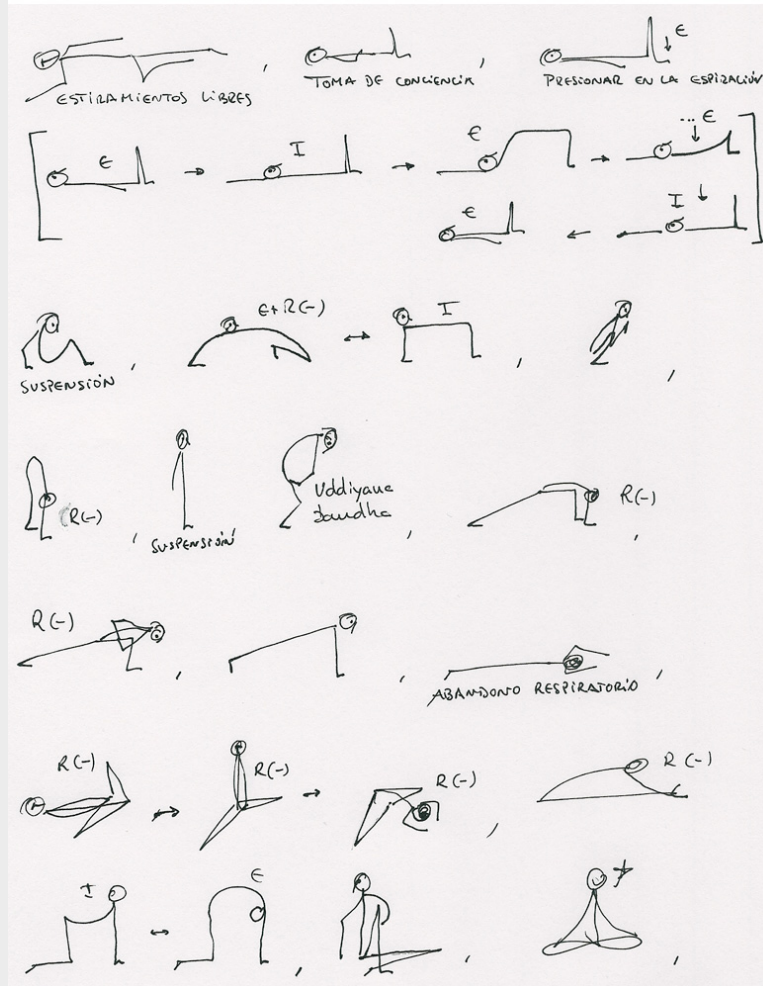 E
ESTIRAMIENTOS LIBRES , TOMA DE CONCIENCIA , PRESIONAR EN LA ESPIRACIÓN
E I E ... E
E I
E+R(-) I
SUSPENSIÓN , , ,
R(-) , SUSPENSIÓN , Uddiyana Bandha , R(-) ,
R(-) , , ABANDONO RESPIRATORIO ,
R(-) R(-) R(-) , R(-)
I E , , ,